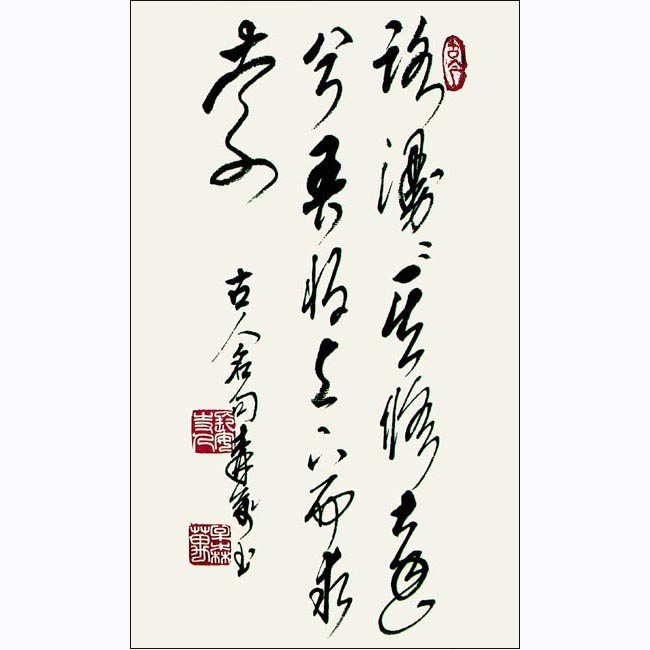 路漫漫其修遠
兮吾将上下而求
索
古人名句